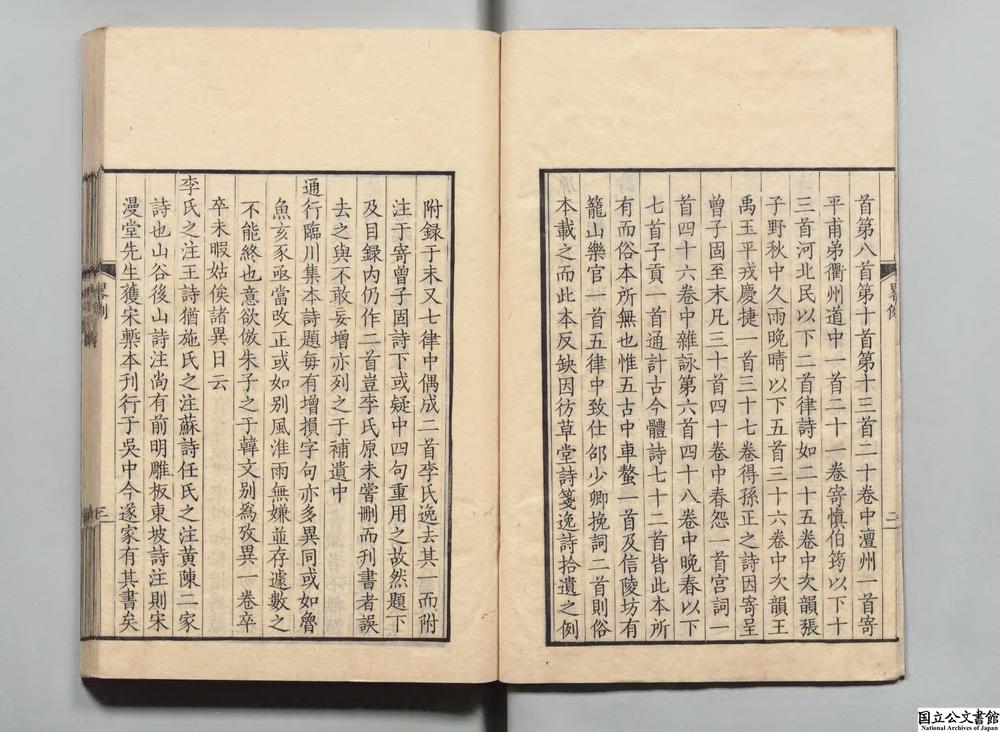 首第八首第十首第十三首二十卷中澶州一首寄
平甫弟衢州道中一首二十一卷寄愼伯筠以下十
三首河北民以下二首律詩如二十五卷中次韻張
子野秋中久雨晚晴以下五首三十六卷中次韻王
禹玉平戎慶捷一首三十七卷得孫正之詩因寄呈
曾子固至末凡三十首四十卷中春怨一首宮詞一
首四十六卷中雜詠第六首四十八卷中晚春以下
七首子貢一首通計古今體詩七十二首皆此本所
有而俗本所無也惟五古中車螯一首及信陵坊有
籠山樂官一首五律中致仕邵少卿挽詞二首則俗
本載之而此本反缺因彷草堂詩箋逸詩拾遺之例
畧例
二
附録于末又七律中偶成二首李氏逸去其一而附
注于寄曾子固詩下或疑中四句重用之故然題下
及目録内仍作二首豈李氏原未嘗刪而刊書者誤
去之與不敢妄增亦列之于補遺中
通行臨川集本詩題每有增損字句亦多異同或如魯
魚亥豕亟當改正或如别風淮雨無嫌並存遽數之
不能終也意欲倣朱子之于韓文别爲攷異一卷卒
卒未暇姑俟諸異日云
李氏之注王詩猶施氏之注蘇詩任氏之注黃陳二家
詩也山谷後山詩注尚有前明雕板東坡詩注則宋
漫堂先生獲宋槧本刊行于吳中今遂家有其書矣
畧例
三
国立公文書館
National Archives of Japan